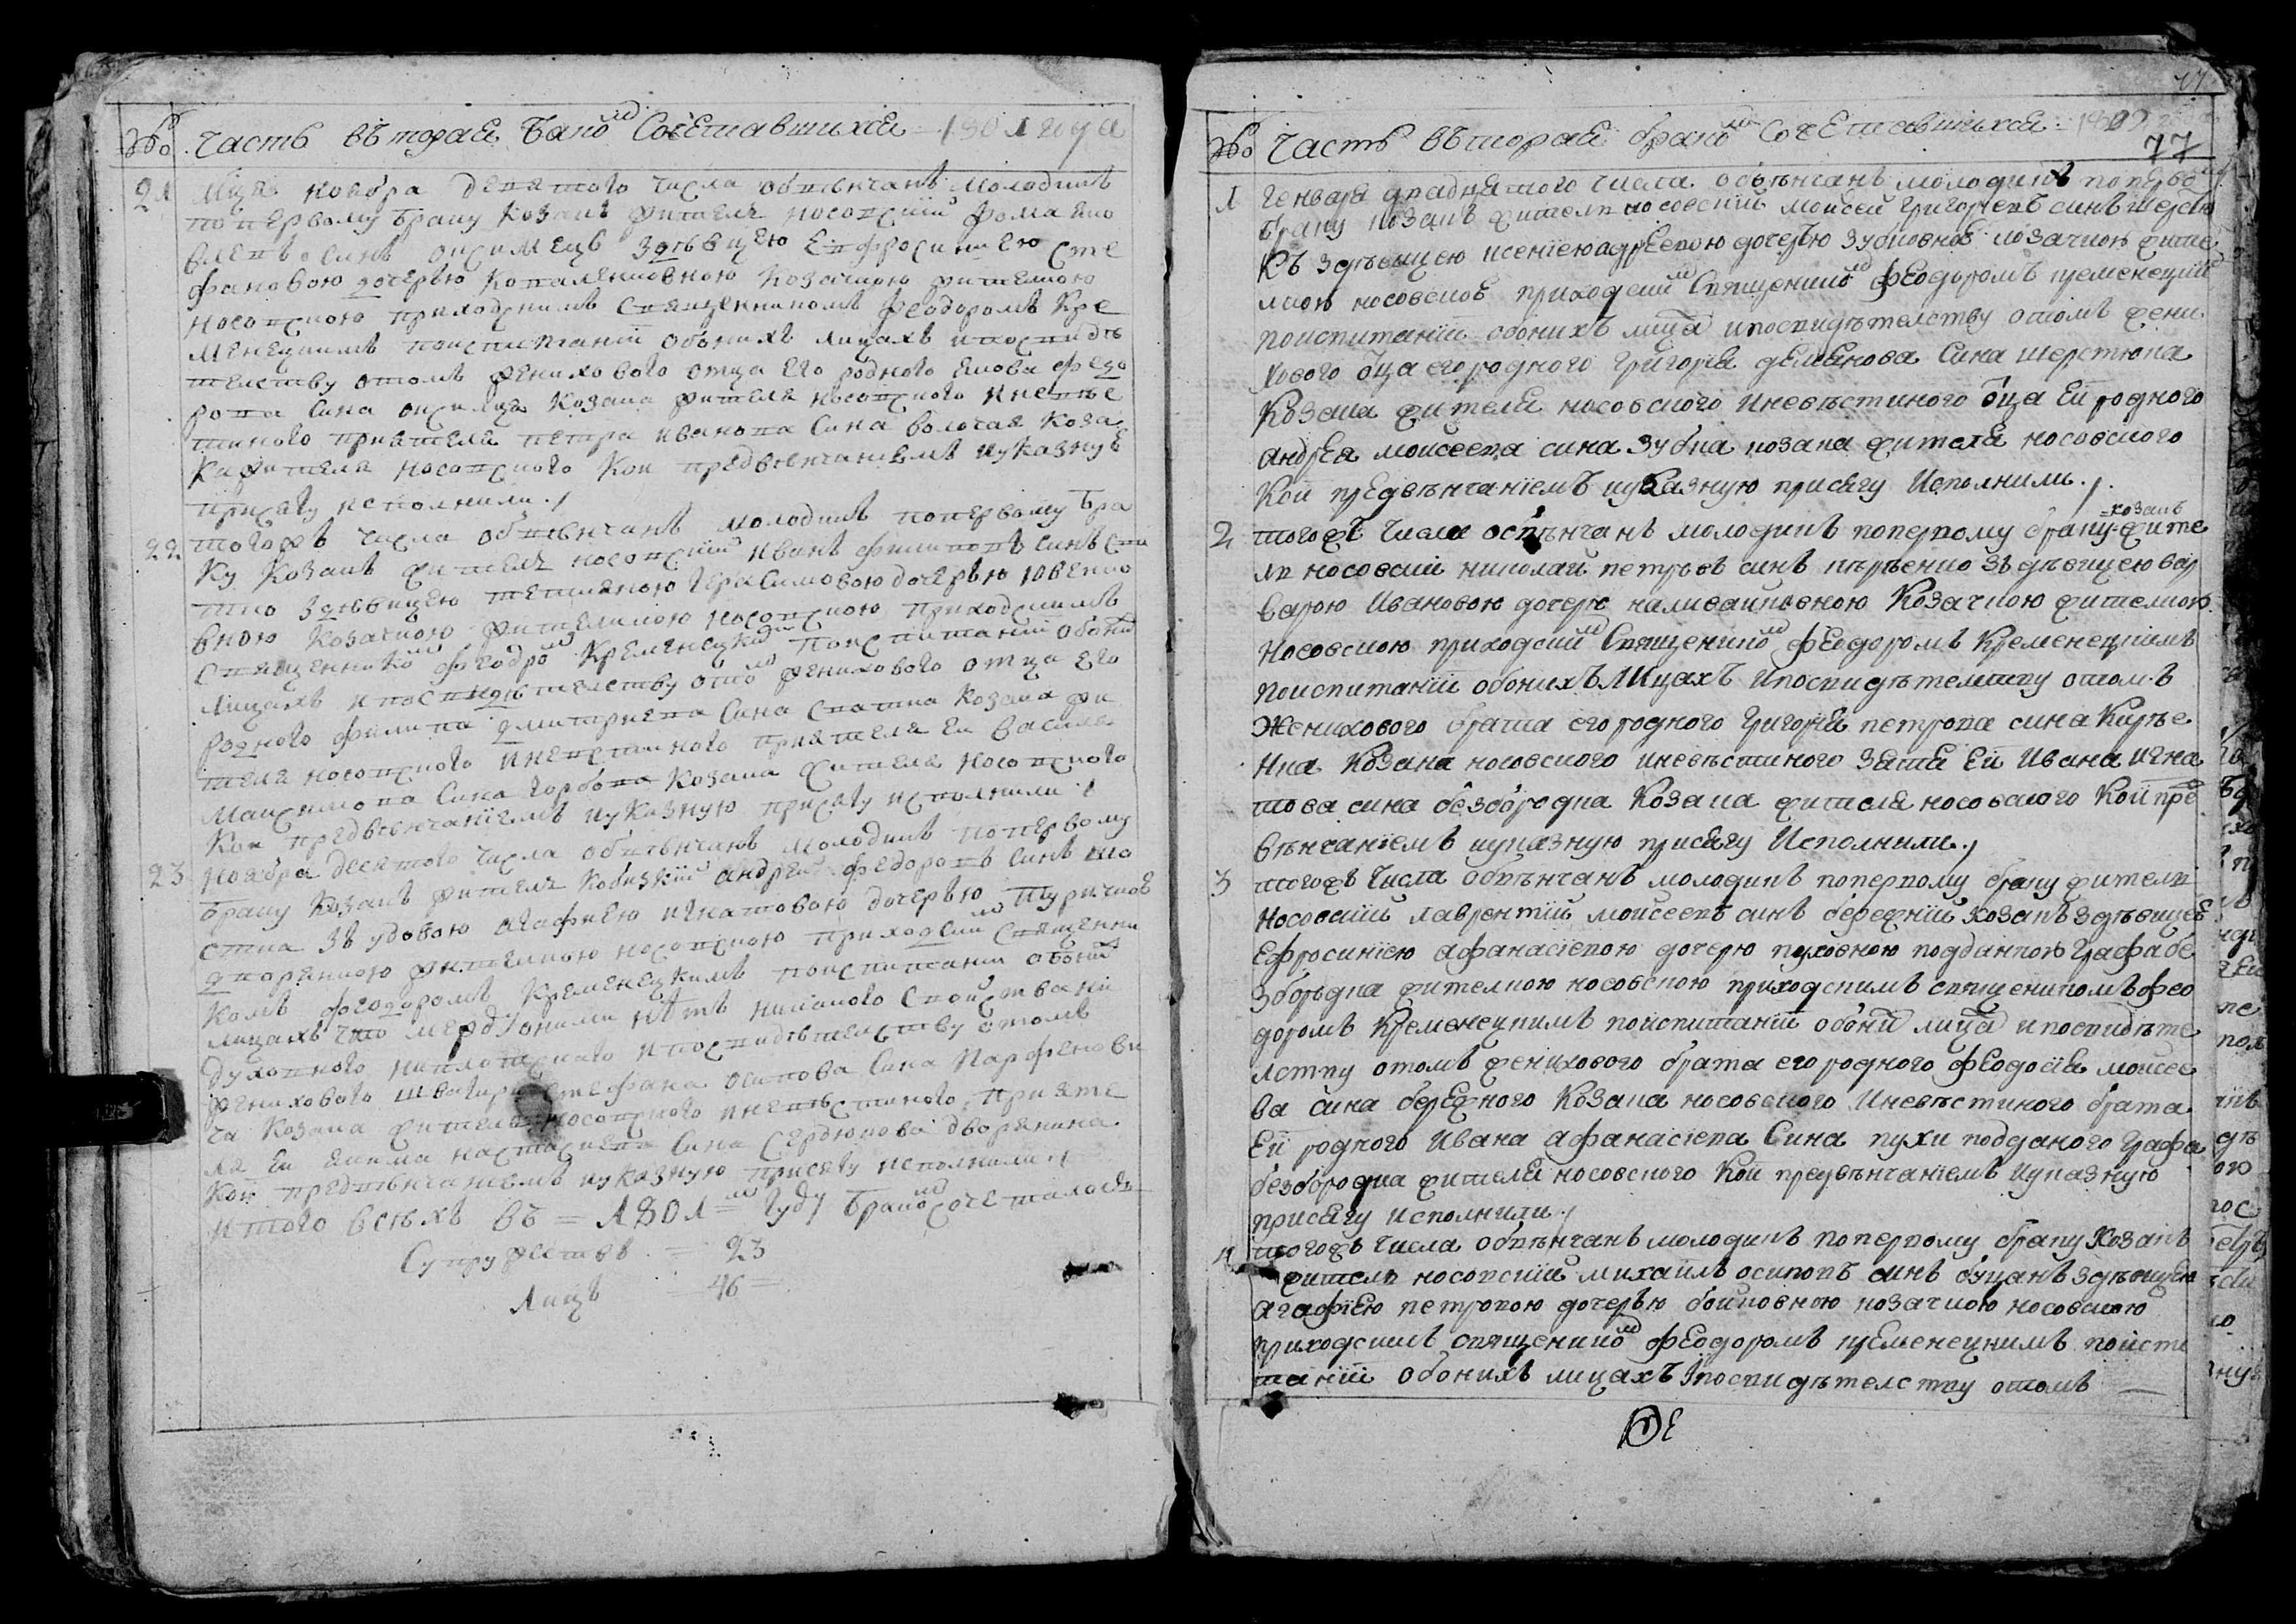 № Часть въторая Бракомъ Сочетавшихся 1801 года
21 Мця ноября девятого числа обвѣнчанъ молодикъ
поперъвому браку козакъ жителъ носовскій Фома
влевъ синъ онисимецъ здѣвицею Евфросиниею Сте
фановою дочерью Козачкою жителкою
носовскою приходскимъ Священникомъ Феодоромъ Кре
менецкимъ поиспитаніи обоихъ лицахъ ипосвидѣ
телству отомъ женихового отца его родного Федо
рова сина козака жителя носовского иневѣс
тиного приятеля петра иванова сина волочая коза
ка жителя носовского Кои предвѣнчаниемъ иуказную
присягу исполнили.
22 тогожъ числа обвѣнчанъ молодикъ поперъвому бра
ку Козакъ жителъ носовскій иванъ филиповъ синъ спа
тко здѣвицею тетяною герасимовою дочерью
вною козачкою жителкою носовскою приходскимъ
Священникомъ Феодромъ Кременецкимъ поиспитаніи обоихъ
лицахъ ипосвидѣтелству отомъ женихового отца его
родного филипа дмитриева сина спатка козака жи
теля носовского иневѣстиного приятеля ея василя
максимова сина горбова козака жителя носовского
Кои предвѣнчаниемъ иуказную присягу исполнили
23 Ноября десятого числа обвѣнчанъ молодикъ поперъвому
браку козакъ жителъ кобизкій андрей федоровъ синъ
стка зъ удовою агафиею игнатовою дочерью
дворянкою жителкою носовскою приходским священни
комъ феодоромъ Кременецкимъ поиспитании обоихъ
лицахъ что межъ оними нѣтъ никакого свойства ни
духовного ниплотского ипосвидѣтелству отомъ
женихового швагира стефана осипова сина парфенови
ча козака жителя носовского иневѣстиного прияте
ля ея екима настасиева сина сердюкова дворянина
Кои предвѣнчаниемъ иуказную присягу исполнили
итого всѣхъ въ = 1801 = году бракомъ сочеталось
Супружествъ = 23
Лицъ 46 =
77
№ Часть въторая бракомъ Сочетавшихся 1802
77
1 Генваря двадцятого числа обвѣнчанъ молодикъ поперво
браку козакъ жителъ носовский моисей григориевъ синъ шерстю
къ здѣвицею ксениею адрѣевою дочерью зубковною козачкою жите
лкою носовскою приходским Священником феодоромъ кременецким
поиспитаніи обоихъ лица ипосвидѣтелству отомъ жени
хового оца его родного григория демянова сина шерстюка
козака жителя носовского иневѣстиного оца ей родного
андрея моисеева сина зубка козака жителя носовского
Кои предвѣнчаніемъ иуказную присягу исполнили.
2 тогожъ числа обвѣнчанъ молодикъ поперъвому браку козакъ жите
лъ носовский николай петровъ синъ кирѣенко зъ дѣвицею вар
варою ивановою дочерю наливайковною козачкою жителкою
носовскою приходским Священником феодоромъ Кременецкимъ
поиспитаніи обоихъ лицахъ ипосвидѣтелству отомъ
женихового брата его родного григория петрова сина кирѣе
нка козака носовского иневѣстиного зятя ей ивана игна
това сина безбородка козака жителя носовского Кои пре
вѣнчаниемъ иуказную присягу исполнили.
3 тогожъ числа обвѣнчанъ молодикъ поперъвому браку жителъ
носовский лаврентий моисеевъ синъ бережний козакъ здѣвицею
ефросиниею афанасиевою дочерю пуховною подданкою графа бе
збородка жителкою носовскою приходскимъ священикомъ фео
доромъ Кременецкимъ поиспитаніи обоих лица ипосвидѣте
лству отомъ женихового брата его родного феодосия моисее
ва сина бережного козака носовского иневѣстиного брата
ей родного ивана афанасиева сина пухи подданого графа
безбородка жителя носовского Кои предвѣнчаниемъ иуказную
присягу исполнили.
4 тогожъ числа обвѣнчанъ молодикъ поперъвому браку козакъ
жителъ носовский михаилъ осиповъ синъ буцанъ здѣвицею
агафиею петровою дочерью бойковною козачкою носовскою
приходскимъ священником феодоромъ кременецкимъ поиспи
таніи обоихъ лицахъ ипосвидѣтелству отомъ